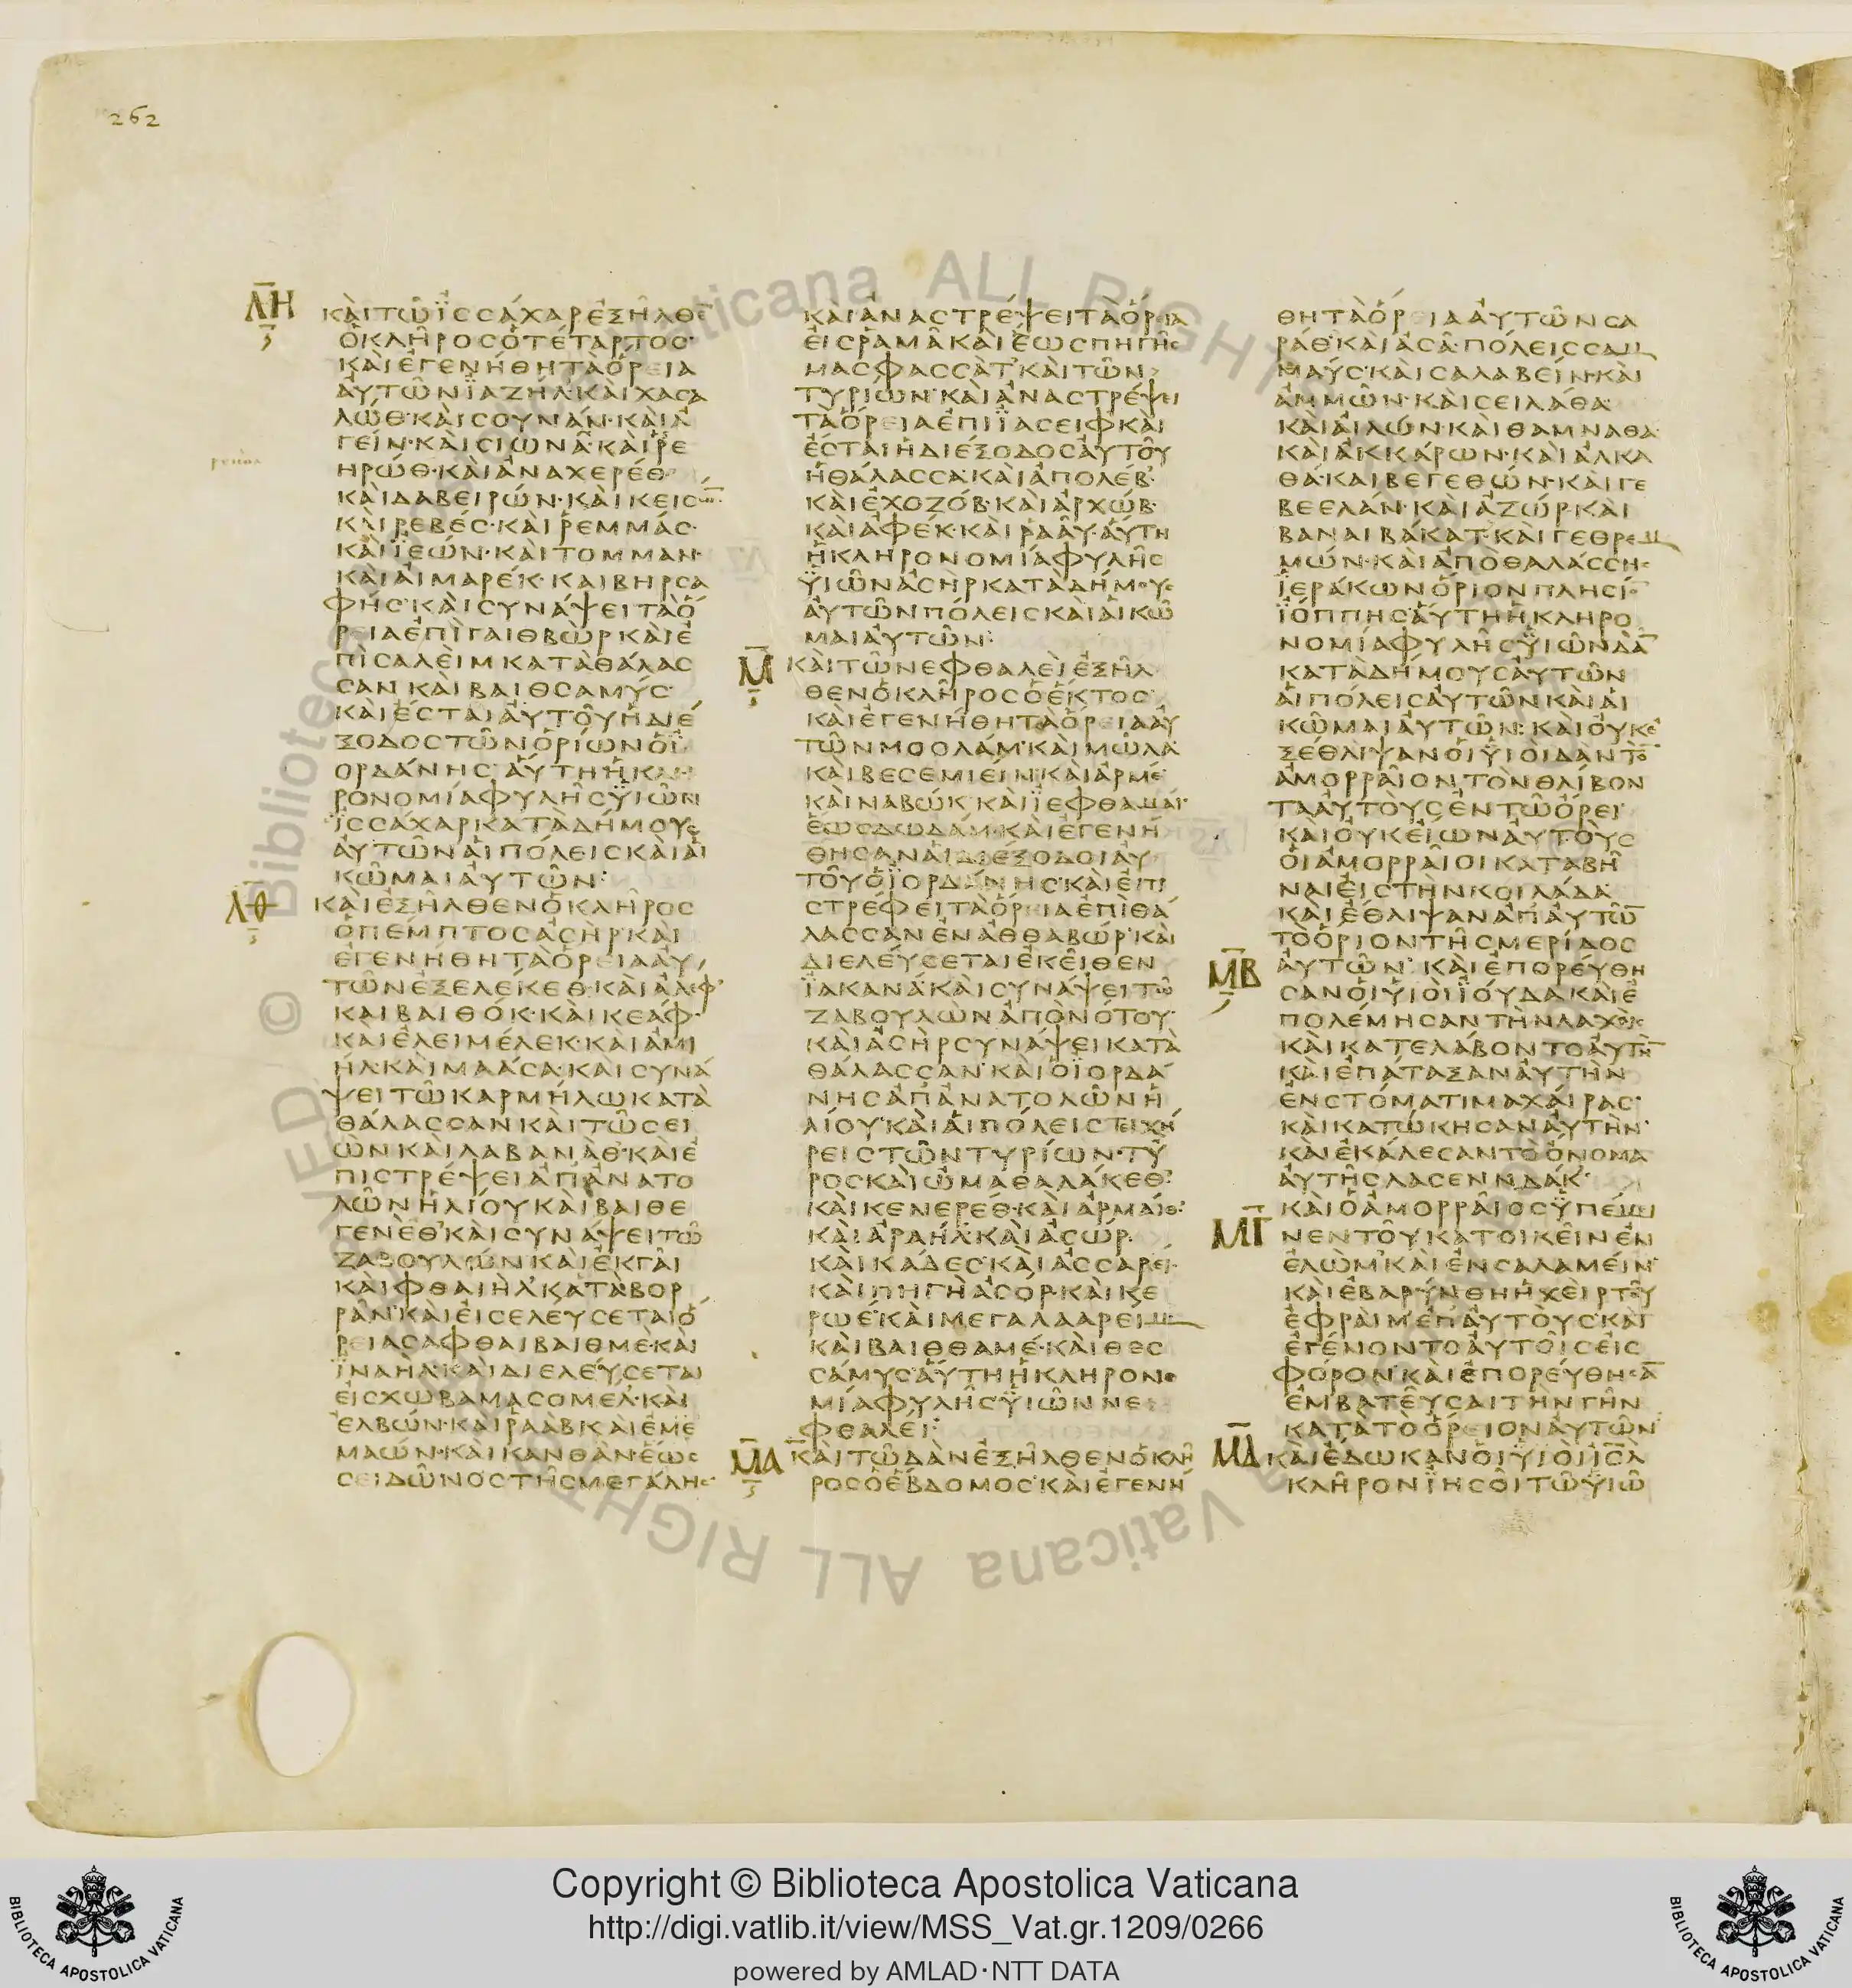 262
ΛΗ
ΚΑΙΤΩΙΣΣΑΧΑΡΕΞΗΛΘΕ
ΟΚΛΗΡΟΣΟΤΕΤΑΡΤΟΣ
ΚΑΙΕΓΕΝΗΘΗΤΑΟΡΕΙΑ
ΑΥΤΩΝΙΑΖΗΛ·ΚΑΙΧΑΣΑ
ΛΩΘ·ΚΑΙΣΟΥΝΑΝ·ΚΑΙΑ
ΓΕΙΝ·ΚΑΙΣΙΩΝΑ·ΚΑΙΡΕ
ΗΡΩΘ·ΚΑΙΑΝΑΧΕΡΕΘ
ΚΑΙΔΑΒΕΙΡΩΝ·ΚΑΙΚΕΙΣΩ̅
ΚΑΙΡΕΒΕΣ·ΚΑΙΡΕΜΜΑΣ·
ΚΑΙΙΕΩΝ·ΚΑΙΤΟΜΜΑΝ·
ΚΑΙΑΙΜΑΡΕΚ·ΚΑΙΒΗΡΣΑ
ΦΗΣ·ΚΑΙΣΥΝΑΨΕΙΤΑΟ
ΡΕΙΑΕΠΙΓΑΙΘΒΩΡΚΑΙΕ
ΠΙΣΑΛΕΙΜΚΑΤΑΘΑΛΑΣ
ΣΑΝΚΑΙΒΑΙΘΣΑΜΥΣ
ΚΑΙΕΣΤΑΙΑΥΤΟΥΗΔΙΕ
ΞΟΔΟΣΤΩΝΟΡΙΩΝΟΙ
ΟΡΔΑΝΗΣ·ΑΥΤΗΗΚΛΗ
ΡΟΝΟΜΙΑΦΥΛΗΣΥΙΩΝ
ΙΣΣΑΧΑΡΚΑΤΑΔΗΜΟΥΣ
ΑΥΤΩΝΑΙΠΟΛΕΙΣΚΑΙΑΙ
ΚΩΜΑΙΑΥΤΩΝ:
ΛΘ
ΚΑΙΕΞΗΛΘΕΝΟΚΛΗΡΟΣ
ΟΠΕΜΠΤΟΣΑΣΗΡ·ΚΑΙ
ΕΓΕΝΗΘΗΤΑΟΡΕΙΑΑΥ
ΤΩΝΕΞΕΛΕΚΕΘ·ΚΑΙΑΛΕΦ
ΚΑΙΒΑΙΘΟΚ·ΚΑΙΚΕΑΦ·
ΚΑΙΕΛΕΙΜΕΛΕΚ·ΚΑΙΑΜΙ
ΗΛ·ΚΑΙΜΑΑΣΑ·ΚΑΙΣΥΝΑ
ΨΕΙΤΩΚΑΡΜΗΛΩΚΑΤΑ
ΘΑΛΑΣΣΑΝΚΑΙΤΩΣΕΙ
ΩΝΚΑΙΛΑΒΑΝΑΘ·ΚΑΙΕ
ΠΙΣΤΡΕΨΕΙΑΠΑΝΑΤΟ
ΛΩΝΗΛΙΟΥΚΑΙΒΑΙΘΕ
ΓΕΝΕΘ·ΚΑΙΣΥΝΑΨΕΙΤΩ
ΖΑΒΟΥΛΩΝΚΑΙΕΚΓΑΙ
ΚΑΙΦΘΑΙΗΛΚΑΤΑΒΟΡ
ΡΑΝ·ΚΑΙΕΙΣΕΛΕΥΣΕΤΑΙΟ
ΡΕΙΑΣΑΦΘΑΙΒΑΙΘΜΕ·ΚΑΙ
ΙΝΑΗΛ·ΚΑΙΔΙΕΛΕΥΣΕΤΑΙ
ΕΙΣΧΩΒΑΜΑΣΟΜΕΛ·ΚΑΙ
ΕΛΒΩΝ·ΚΑΙΡΑΑΒΚΑΙΕΜΕ
ΜΑΩΝ·ΚΑΙΚΑΝΘΑΝ·ΕΩΣ
ΣΕΙΔΩΝΟΣΤΗΣΜΕΓΑΛΗΣ
ΚΑΙΑΝΑΣΤΡΕΨΕΙΤΑΟΡΕΙΑ
ΕΙΣΡΑΜΑΚΑΙΕΩΣΠΗΓΗΣ
ΜΑΣΦΑΣΣΑΤ·ΚΑΙΤΩΝ
ΤΥΡΙΩΝ·ΚΑΙΑΝΑΣΤΡΕΨΕΙ
ΤΑΟΡΕΙΑΕΠΙΙΑΣΕΙΦΚΑΙ
ΕΣΤΑΙΗΔΙΕΞΟΔΟΣΑΥΤΟΥ
ΗΘΑΛΑΣΣΑ·ΚΑΙΑΠΟΛΕΒ·
ΚΑΙΕΧΟΖΟΒ·ΚΑΙΑΡΧΩΒ·
ΚΑΙΑΦΕΚ·ΚΑΙΡΑΑΥ·ΑΥΤΗ
ΗΚΛΗΡΟΝΟΜΙΑΦΥΛΗΣ
ΥΙΩΝΑΣΗΡΚΑΤΑΔΗΜΟΥΣ
ΑΥΤΩΝΠΟΛΕΙΣΚΑΙΑΙΚΩ
ΜΑΙΑΥΤΩΝ:
Μ
ΚΑΙΤΩΝΕΦΘΑΛΕΙΕΞΗΛ
ΘΕΝΟΚΛΗΡΟΣΟΕΚΤΟΣ
ΚΑΙΕΓΕΝΗΘΗΤΑΟΡΕΙΑΑΥ
ΤΩΝΜΟΟΛΑΜ·ΚΑΙΜΩΛΑ
ΚΑΙΒΕΣΕΜΙΕΙΝ·ΚΑΙΑΡΜΕ
ΚΑΙΝΑΒΩΚ·ΚΑΙΙΕΦΘΑΜΑΙ·
ΕΩΣΔΩΔΑΜ·ΚΑΙΕΓΕΝΗ
ΘΗΣΑΝΑΙΔΙΕΞΟΔΟΙΑΥ
ΤΟΥΟΙΟΡΔΑΝΗΣ·ΚΑΙΕΠΙ
ΣΤΡΕΦΕΙΤΑΟΡΕΙΑΕΠΙΘΑ
ΛΑΣΣΑΝΕΝΑΘΘΑΒΩΡ·ΚΑΙ
ΔΙΕΛΕΥΣΕΤΑΙΕΚΕΙΘΕΝ
ΙΑΚΑΝΑ·ΚΑΙΣΥΝΑΨΕΙΤΩ
ΖΑΒΟΥΛΩΝΑΠΟΝΟΤΟΥ·
ΚΑΙΑΣΗΡΣΥΝΑΨΕΙΚΑΤΑ
ΘΑΛΑΣΣΑΝ·ΚΑΙΟΙΟΡΔΑ
ΝΗΣΑΠΑΝΑΤΟΛΩΝΗ
ΛΙΟΥ·ΚΑΙΑΙΠΟΛΕΙΣΤΕΙΧΗ
ΡΕΙΣΤΩΝΤΥΡΙΩΝ·ΤΥ
ΡΟΣΚΑΙΩΜΑΘΑΛΑΚΕΘ·
ΚΑΙΚΕΝΕΡΕΘ·ΚΑΙΑΡΜΑΙΘ·
ΚΑΙΑΡΑΗΛ·ΚΑΙΑΣΩΡ·
ΚΑΙΚΑΔΕΣ·ΚΑΙΑΣΣΑΡΕΙ·
ΚΑΙΠΗΓΗΑΣΟΡ·ΚΑΙΚΕ
ΡΩΕ·ΚΑΙΜΕΓΑΛΑΑΡΕΙΜ
ΚΑΙΒΑΙΘΘΑΜΕ·ΚΑΙΘΕΣ
ΣΑΜΥΣ·ΑΥΤΗΗΚΛΗΡΟΝΟ
ΜΙΑΦΥΛΗΣΥΙΩΝΝΕ
ΦΘΑΛΕΙ:
ΜΑ
ΚΑΙΤΩΔΑΝΕΞΗΛΘΕΝΟΚΛΗ
ΡΟΣΟΕΒΔΟΜΟΣ·ΚΑΙΕΓΕΝΗ
ΘΗΤΑΟΡΕΙΑΑΥΤΩΝΣΑ
ΡΑΘ·ΚΑΙΑΣΑ·ΠΟΛΕΙΣΣΑΜ
ΜΑΥΣ·ΚΑΙΣΑΛΑΒΕΙΝ·ΚΑΙ
ΑΜΜΩΝ·ΚΑΙΣΕΙΛΑΘΑ
ΚΑΙΑΙΛΩΝ·ΚΑΙΘΑΜΝΑΘΑ
ΚΑΙΑΚΚΑΡΩΝ·ΚΑΙΑΛΚΑ
ΘΑ·ΚΑΙΒΕΓΕΘΩΝ·ΚΑΙΓΕ
ΒΕΕΛΑΝ·ΚΑΙΑΖΩΡ·ΚΑΙ
ΒΑΝΑΙΒΑΚΑΤ·ΚΑΙΓΕΘΡΕΜ
ΜΩΝ·ΚΑΙΑΠΟΘΑΛΑΣΣΗΣ
ΙΕΡΑΚΩΝΟΡΙΟΝΠΛΗΣΙΟ̅
ΙΟΠΠΗΣ·ΑΥΤΗΗΚΛΗΡΟ
ΝΟΜΙΑΦΥΛΗΣΥΙΩΝΔΑ̅
ΚΑΤΑΔΗΜΟΥΣΑΥΤΩΝ
ΑΙΠΟΛΕΙΣΑΥΤΩΝΚΑΙΑΙ
ΚΩΜΑΙΑΥΤΩΝ:ΚΑΙΟΥΚΕ
ΞΕΘΛΙΨΑΝΟΙΥΙΟΙΔΑΝΤΟ̅
ΑΜΟΡΡΑΙΟΝΤΟΝΘΛΙΒΟΝ
ΤΑΑΥΤΟΥΣΕΝΤΩΟΡΕΙ·
ΚΑΙΟΥΚΕΙΩΝΑΥΤΟΥΣ
ΟΙΑΜΟΡΡΑΙΟΙΚΑΤΑΒΗ
ΝΑΙΕΙΣΤΗΝΚΟΙΛΑΔΑ
ΚΑΙΕΘΛΙΨΑΝΑΠΑΥΤΩ̅
ΤΟΟΡΙΟΝΤΗΣΜΕΡΙΔΟΣ
ΜΒ
ΑΥΤΩΝ·ΚΑΙΕΠΟΡΕΥΘΗ
ΣΑΝΟΙΥΙΟΙΙΟΥΔΑΚΑΙΕ
ΠΟΛΕΜΗΣΑΝΤΗΝΛΑΧΕΙΣ
ΚΑΙΚΑΤΕΛΑΒΟΝΤΟΑΥΤΗ̅
ΚΑΙΕΠΑΤΑΞΑΝΑΥΤΗΝ
ΕΝΣΤΟΜΑΤΙΜΑΧΑΙΡΑΣ·
ΚΑΙΚΑΤΩΚΗΣΑΝΑΥΤΗΝ·
ΚΑΙΕΚΑΛΕΣΑΝΤΟΟΝΟΜΑ
ΑΥΤΗΣΛΑΣΕΝΝΔΑΚ·
ΜΓ
ΚΑΙΟΑΜΟΡΡΑΙΟΣΥΠΕΜΕΙ
ΝΕΝΤΟΥΚΑΤΟΙΚΕΙΝΕΝ
ΕΛΩΜ·ΚΑΙΕΝΣΑΛΑΜΕΙΝ·
ΚΑΙΕΒΑΡΥΝΘΗΗΧΕΙΡΤΟΥ
ΕΦΡΑΙΜΕΠΑΥΤΟΥΣΚΑΙ
ΕΓΕΝΟΝΤΟΑΥΤΟΙΣΕΙΣ
ΦΟΡΟΝ·ΚΑΙΕΠΟΡΕΥΘΗΣΑ̅
ΕΜΒΑΤΕΥΣΑΙΤΗΝΓΗΝ
ΚΑΤΑΤΟΟΡΕΙΟΝΑΥΤΩΝ
ΜΔ
ΚΑΙΕΔΩΚΑΝΟΙΥΙΟΙΙΣ̅Λ
ΚΛΗΡΟΝΙΗΣΟΙΤΩΥΙΩ
Copyright © Biblioteca Apostolica Vaticana
http://digi.vatlib.it/view/MSS_Vat.gr.1209/0266
powered by AMLAD·NTT DATA
BIBLIOTECA APOSTOLICA VATICANA
BIBLIOTECA APOSTOLICA VATICANA